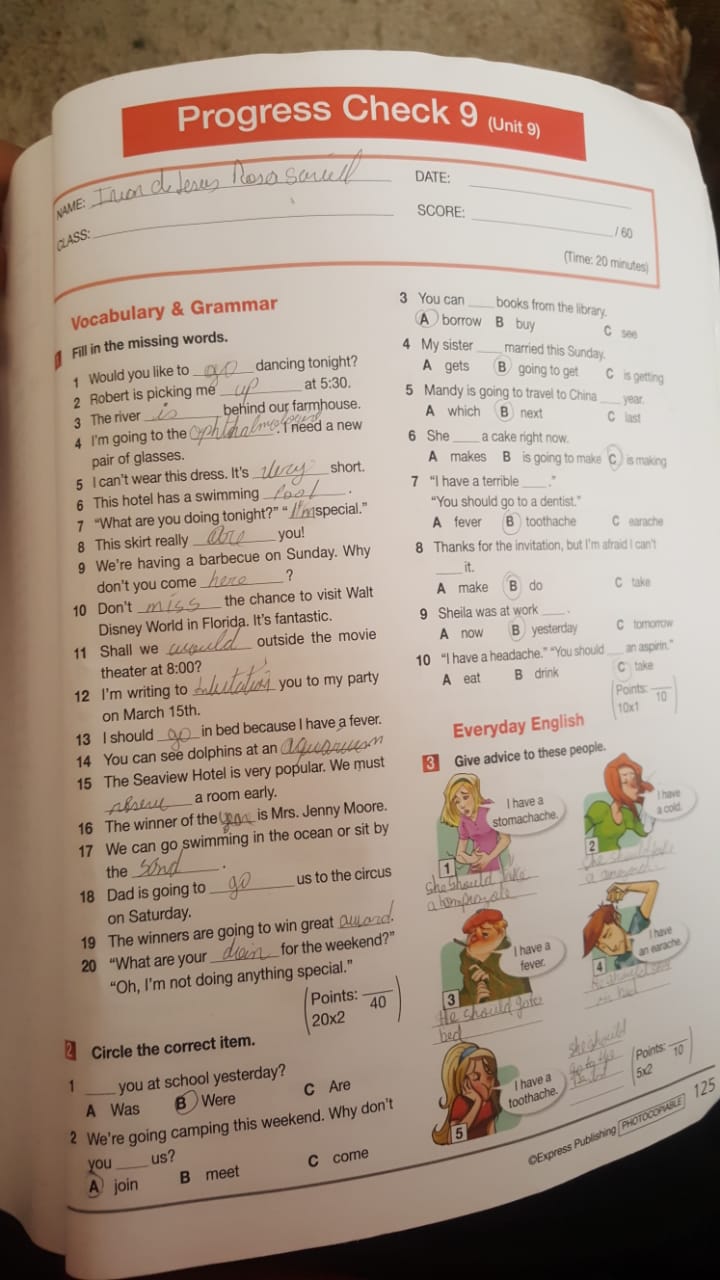 Progress Check 9 (Unit 9)
NAME: de Jesus Rosa
DATE:
CLASS:
SCORE: /60
(Time: 20 minutes)
Vocabulary & Grammar
1 Fill in the missing words.
1 Would you like to go dancing tonight?
2 Robert is picking me up at 5:30.
3 The river is behind our farmhouse.
4 I'm going to the . I need a new
pair of glasses.
5 I can't wear this dress. It's very short.
6 This hotel has a swimming pool .
7 "What are you doing tonight?" " I'm special."
8 This skirt really are you!
9 We're having a barbecue on Sunday. Why
don't you come here ?
10 Don't miss the chance to visit Walt
Disney World in Florida. It's fantastic.
11 Shall we would outside the movie
theater at 8:00?
12 I'm writing to you to my party
on March 15th.
13 I should go in bed because I have a fever.
14 You can see dolphins at an aquarium
15 The Seaview Hotel is very popular. We must
a room early.
16 The winner of the year is Mrs. Jenny Moore.
17 We can go swimming in the ocean or sit by
the sand .
18 Dad is going to go us to the circus
on Saturday.
19 The winners are going to win great award.
20 "What are your for the weekend?"
"Oh, I'm not doing anything special."
(Points: 40)
20x2
2 Circle the correct item.
1 you at school yesterday?
A Was B Were C Are
2 We're going camping this weekend. Why don't
you us?
A join B meet C come
3 You can books from the library.
A borrow B buy C see
4 My sister married this Sunday.
A gets B going to get C is getting
5 Mandy is going to travel to China year.
A which B next C last
6 She a cake right now.
A makes B is going to make C is making
7 "I have a terrible ."
"You should go to a dentist."
A fever B toothache C earache
8 Thanks for the invitation, but I'm afraid I can't
it.
A make B do C take
9 Sheila was at work .
A now B yesterday C tomorrow
10 "I have a headache." "You should an aspirin."
A eat B drink C take
(Points: 10)
10x1
Everyday English
3 Give advice to these people.
I have a
stomachache.
1
She should take
a
I have
a cold.
2
She should take
a
I have a
fever.
3
He should
bed
I have
an earache.
4
He should
bed
I have a
toothache.
5
she should
go to the
(Points: 10)
5x2
©Express Publishing PHOTOCOPIABLE 125